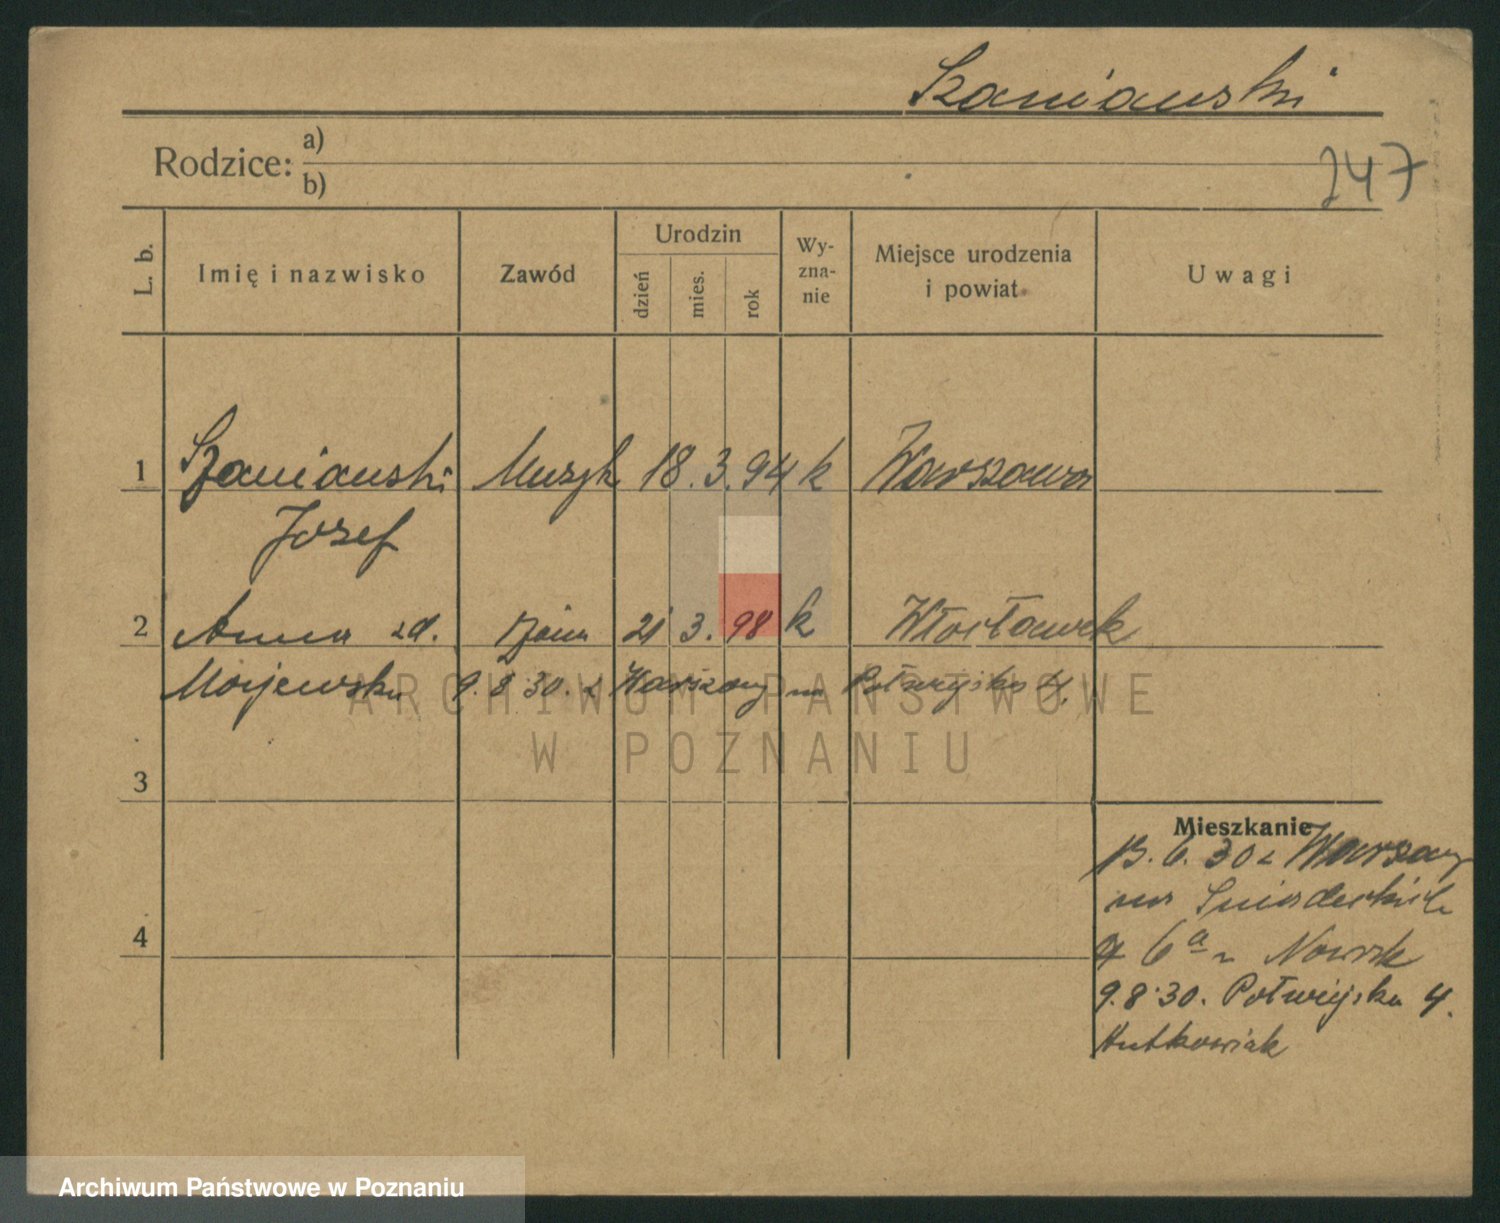 Szaniawski
Rodzice: a)
b)
247
L. b.
Imię i nazwisko
Zawód
Urodzin
dzień
mies.
rok
Wy-
zna-
nie
Miejsce urodzenia
i powiat
Uwagi
1 Szaniawski Muzyk 18. 3. 94 k Warszawa
Józef
2 Anna zd. żona 21 3. 98 k Włocławek
Majewska 9.8.30. z Warszawy na Półwiejska 4.
ARCHIWUM PAŃSTWOWE
W POZNANIU
3
Mieszkanie
13. 6. 30 z Warszawy
na Śniadeckich
6a u Nowak
4
9.8.30. Półwiejska 4.
Archiwum Państwowe w Poznaniu